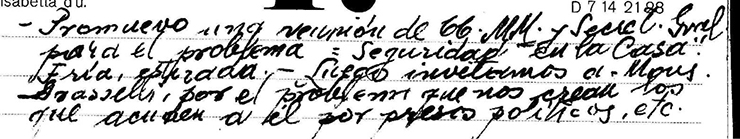 isabella du.
D 7 14 2188
- Promuevo una reunión de GG. MM. y Secret. Gral
para el problema = Seguridad - en la Casa.
Fría, estirada. - Luego invitamos a Mons.
Grasselli, por el problema que nos crean los
que acuden a él por presos políticos, etc.